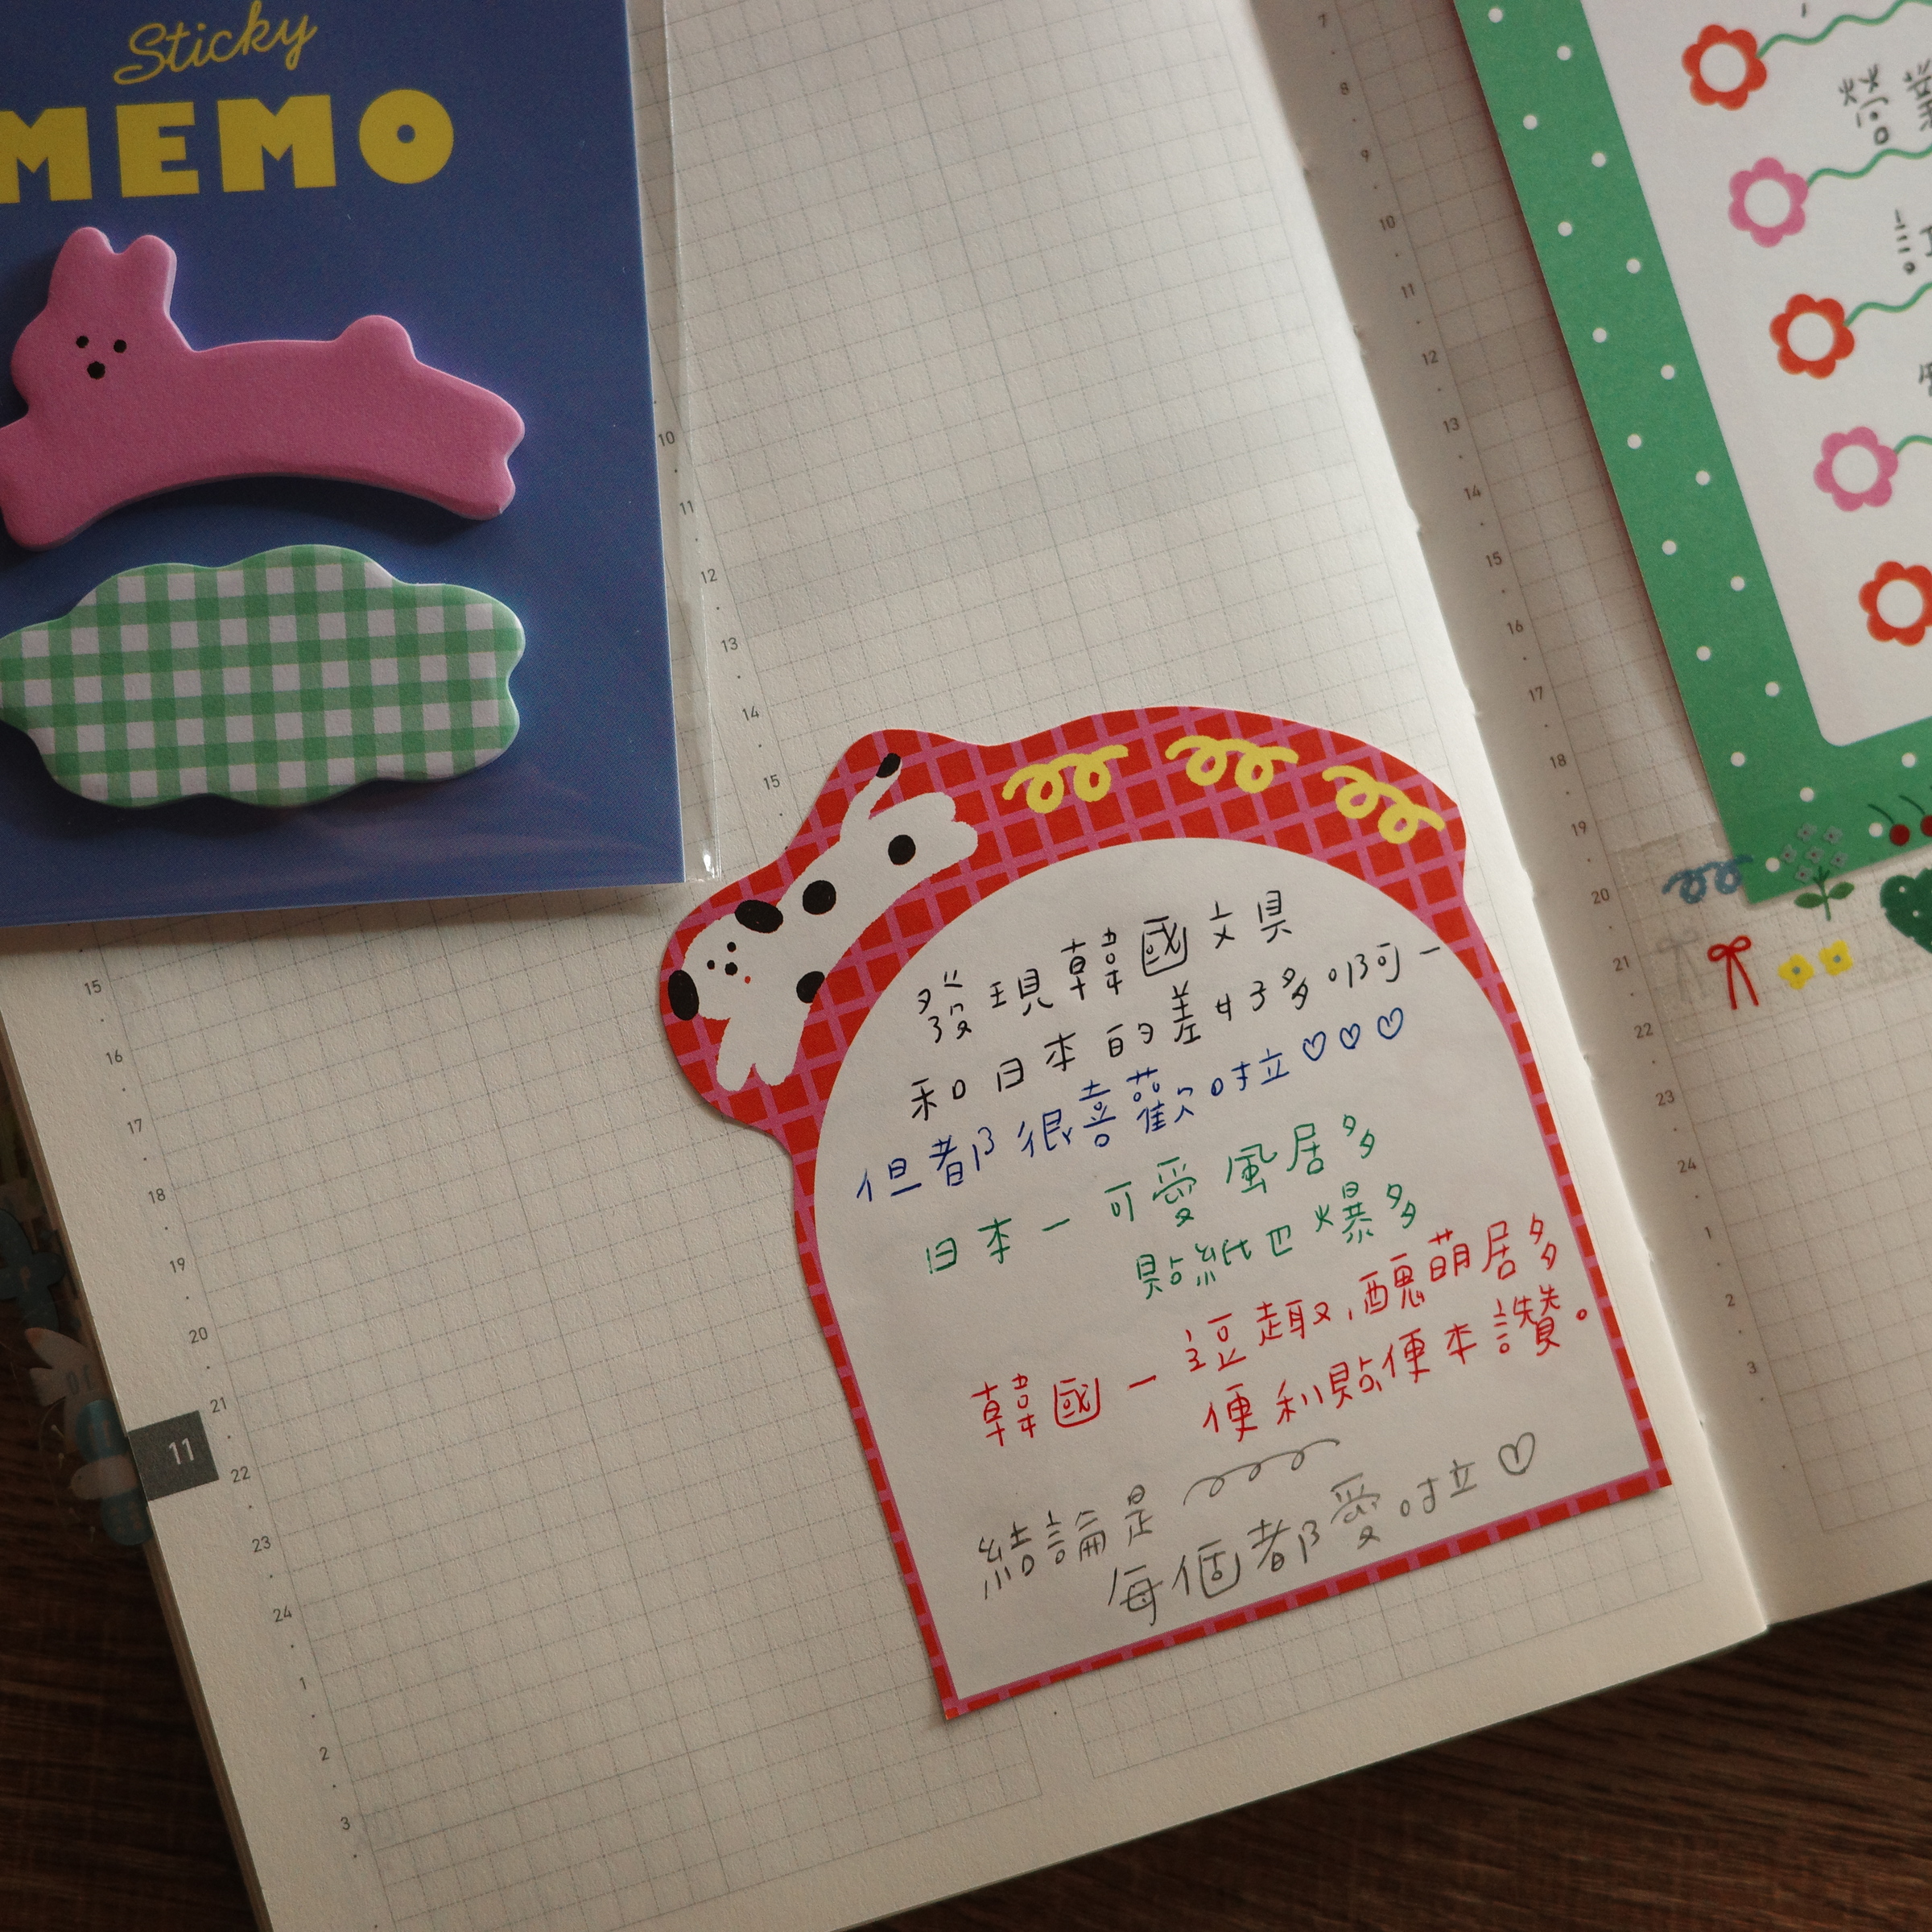 Sticky
MEMO
發現韓國文具
和日本的差好多啊-
但都很喜歡啦♡♡♡
日本 - 可愛風居多
貼紙巴爆多
韓國 - 逗趣又,醜萌居多
便利貼便本讚。
結論是
每個都愛啦♡
10
11
12
13
14
15
15
16
17
18
19
20
21
22
23
24
1
2
3
11
7
8
9
10
11
12
13
14
15
16
17
18
19
20
21
22
23
24
1
2
3